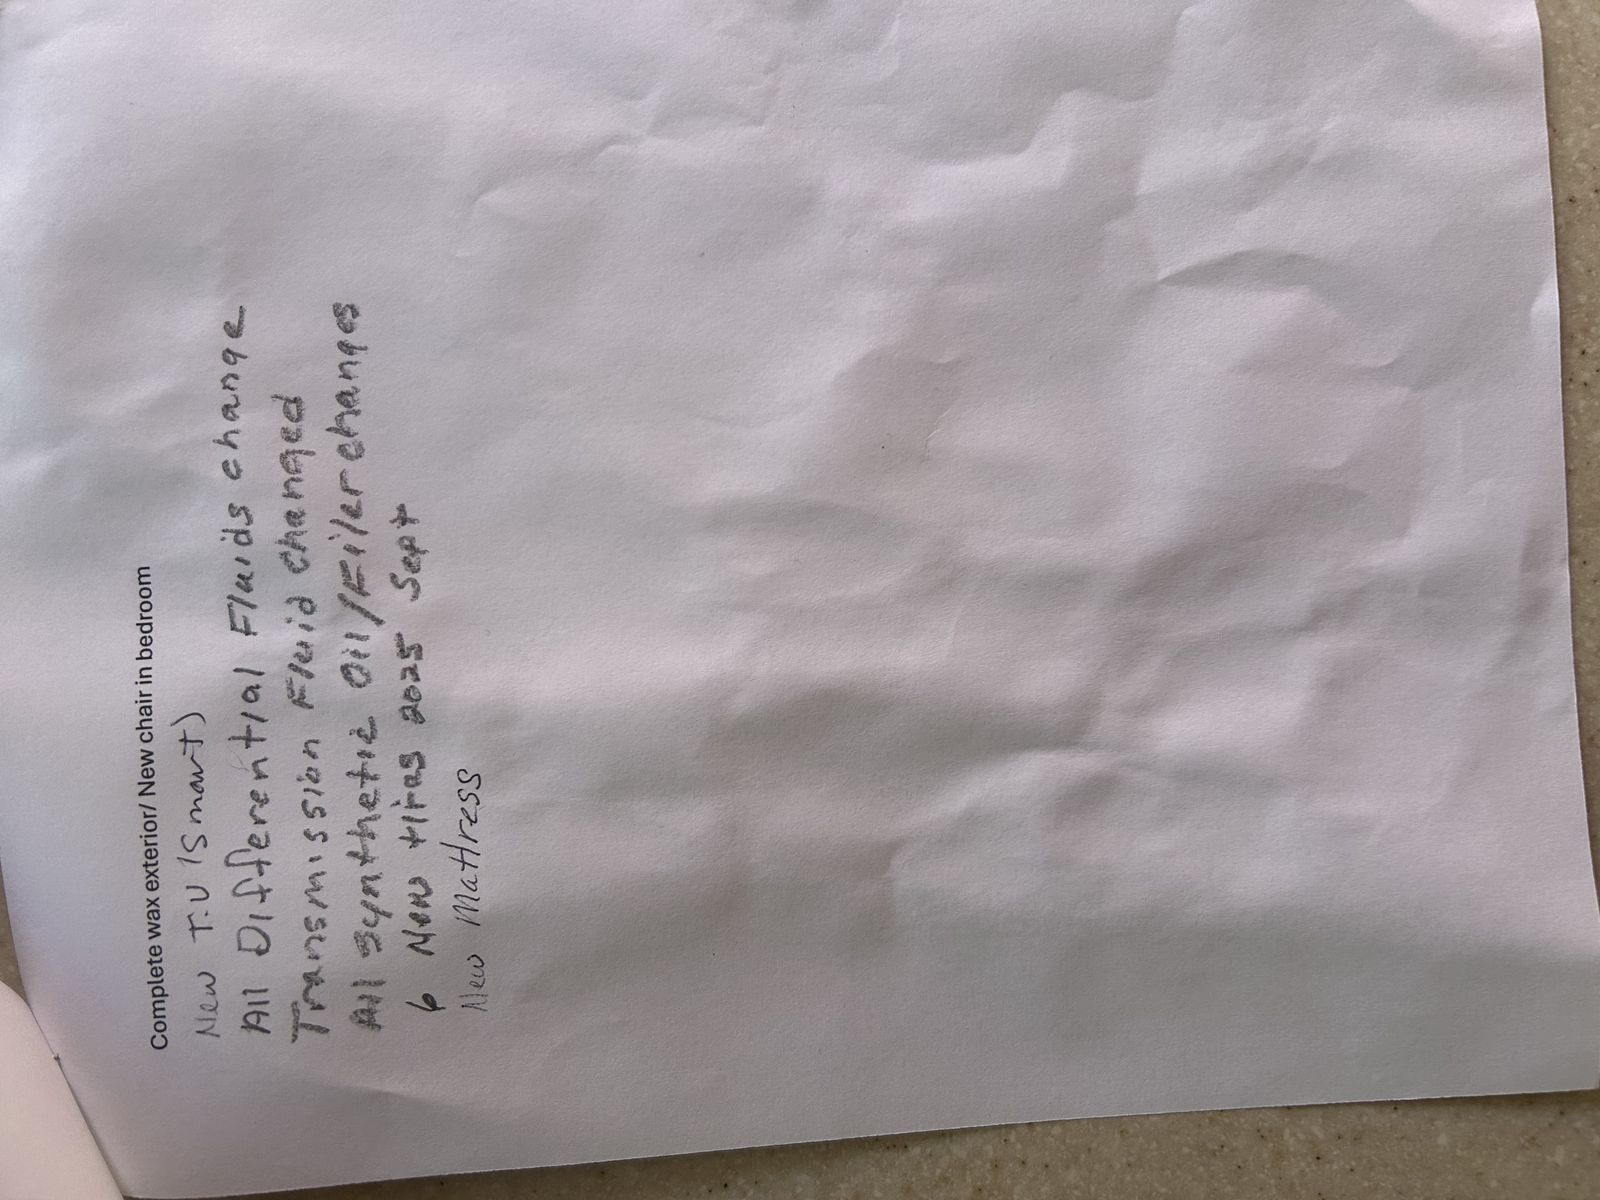 Complete wax exterior/ New chair in bedroom
New T.V (Smart)
All Differential Fluids change
Transmission Fluid changed
All Synthetic Oil/Filer changes
6 New tires 2025 Sept
New Mattress